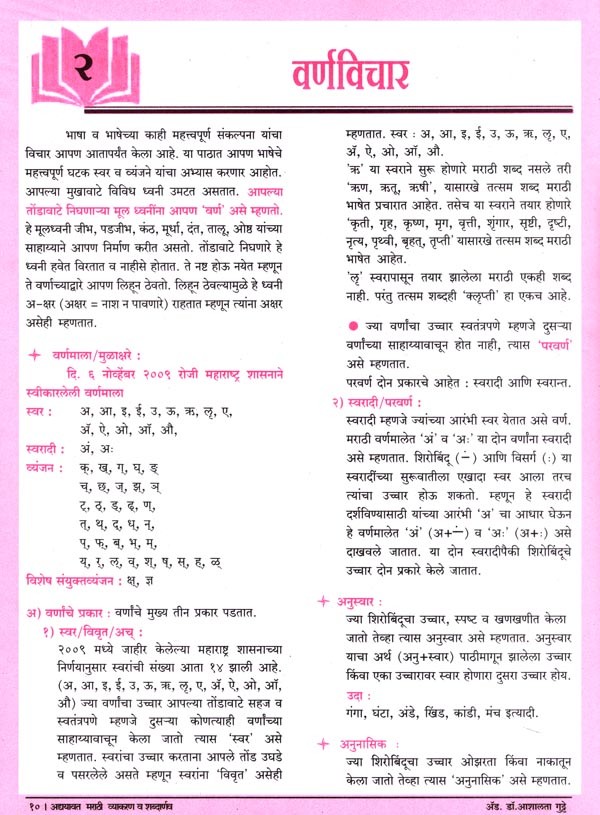 २
वर्णविचार
भाषा व भाषेच्या काही महत्त्वपूर्ण संकल्पना यांचा
विचार आपण आतापर्यंत केला आहे. या पाठात आपण भाषेचे
महत्त्वपूर्ण घटक स्वर व व्यंजने यांचा अभ्यास करणार आहोत.
आपल्या मुखावाटे विविध ध्वनी उमटत असतात. आपल्या
तोंडावाटे निघणाऱ्या मूल ध्वनींना आपण 'वर्ण' असे म्हणतो.
हे मूलध्वनी जीभ, पडजीभ, कंठ, मूर्धा, दंत, तालू, ओष्ठ यांच्या
साहाय्याने आपण निर्माण करीत असतो. तोंडावाटे निघणारे हे
ध्वनी हवेत विरतात व नाहीसे होतात. ते नष्ट होऊ नयेत म्हणून
ते वर्णाच्याद्वारे आपण लिहून ठेवतो. लिहून ठेवल्यामुळे हे ध्वनी
अ-क्षर (अक्षर = नाश न पावणारे) राहतात म्हणून त्यांना अक्षर
असेही म्हणतात.
वर्णमाला/मुळाक्षरे :
दि. ६ नोव्हेंबर २००९ रोजी महाराष्ट्र शासनाने
स्वीकारलेली वर्णमाला
स्वर : अ, आ, इ, ई, उ, ऊ, ऋ, लृ, ए,
ॲ, ऐ, ओ, ऑ, औ,
स्वरादी : अं, अः
व्यंजन : क्, ख्, ग्, घ्, ङ्
च्, छ्, ज्, झ्, ञ्
ट्, ठ्, ड्, ढ्, ण्,
त्, थ्, द्, ध्, न्,
प्, फ्, ब्, भ्, म्,
य्, र्, ल्, व्, श्, ष्, स्, ह्, ळ्
विशेष संयुक्तव्यंजन : क्ष्, ज्ञ्
अ) वर्णांचे प्रकार : वर्णांचे मुख्य तीन प्रकार पडतात.
१) स्वर/विवृत/अच् :
२००९ मध्ये जाहीर केलेल्या महाराष्ट्र शासनाच्या
निर्णयानुसार स्वरांची संख्या आता १४ झाली आहे.
(अ, आ, इ, ई, उ, ऊ, ऋ, लृ, ए, ॲ, ऐ, ओ, ऑ,
औ) ज्या वर्णांचा उच्चार आपल्या तोंडावाटे सहज व
स्वतंत्रपणे म्हणजे दुसऱ्या कोणत्याही वर्णाच्या
साहाय्यावाचून केला जातो त्यास 'स्वर' असे
म्हणतात. स्वरांचा उच्चार करताना आपले तोंड उघडे
व पसरलेले असते म्हणून स्वरांना 'विवृत' असेही
म्हणतात. स्वर : अ, आ, इ, ई, उ, ऊ, ऋ, लृ, ए,
ॲ, ऐ, ओ, ऑ, औ.
'ऋ' या स्वराने सुरू होणारे मराठी शब्द नसले तरी
'ऋण, ऋतू, ऋषी', यासारखे तत्सम शब्द मराठी
भाषेत प्रचारात आहेत. तसेच या स्वराने तयार होणारे
'कृती, गृह, कृष्ण, मृग, वृत्ती, शृंगार, सृष्टी, दृष्टी,
नृत्य, पृथ्वी, बृहत्, तृप्ती' यासारखे तत्सम शब्द मराठी
भाषेत आहेत.
'लृ' स्वरापासून तयार झालेला मराठी एकही शब्द
नाही. परंतु तत्सम शब्दही 'क्लृप्ती' हा एकच आहे.
● ज्या वर्णांचा उच्चार स्वतंत्रपणे म्हणजे दुसऱ्या
वर्णांच्या साहाय्यावाचून होत नाही, त्यास 'परवर्ण'
असे म्हणतात.
परवर्ण दोन प्रकारचे आहेत : स्वरादी आणि स्वरान्त.
२) स्वरादी/परवर्ण :
स्वरादी म्हणजे ज्यांच्या आरंभी स्वर येतात असे वर्ण.
मराठी वर्णमालेत 'अं' व 'अः' या दोन वर्णांना स्वरादी
असे म्हणतात. शिरोबिंदू (∸) आणि विसर्ग (:) या
स्वरादींच्या सुरूवातीला एखादा स्वर आला तरच
त्यांचा उच्चार होऊ शकतो. म्हणून हे स्वरादी
दर्शविण्यासाठी यांच्या आरंभी 'अ' चा आधार घेऊन
हे वर्णमालेत 'अं' (अ+∸) व 'अः' (अ+:) असे
दाखवले जातात. या दोन स्वरादीपैकी शिरोबिंदूचे
उच्चार दोन प्रकारे केले जातात.
अनुस्वार :
ज्या शिरोबिंदूचा उच्चार, स्पष्ट व खणखणीत केला
जातो तेव्हा त्यास अनुस्वार असे म्हणतात. अनुस्वार
याचा अर्थ (अनु+स्वार) पाठीमागून झालेला उच्चार
किंवा एका उच्चारावर स्वार होणारा दुसरा उच्चार होय.
उदा :
गंगा, घंटा, अंडे, खिंड, कांडी, मंच इत्यादी.
अनुनासिक :
ज्या शिरोबिंदूचा उच्चार ओझरता किंवा नाकातून
केला जातो तेव्हा त्यास 'अनुनासिक' असे म्हणतात.
१० । अद्ययावत मराठी व्याकरण व शब्दार्णव
ॲड. डॉ.आशालता गुट्टे